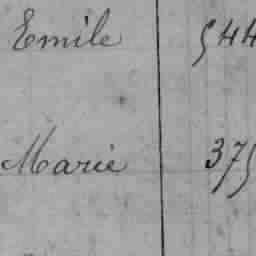 Emile 544
Marie 375